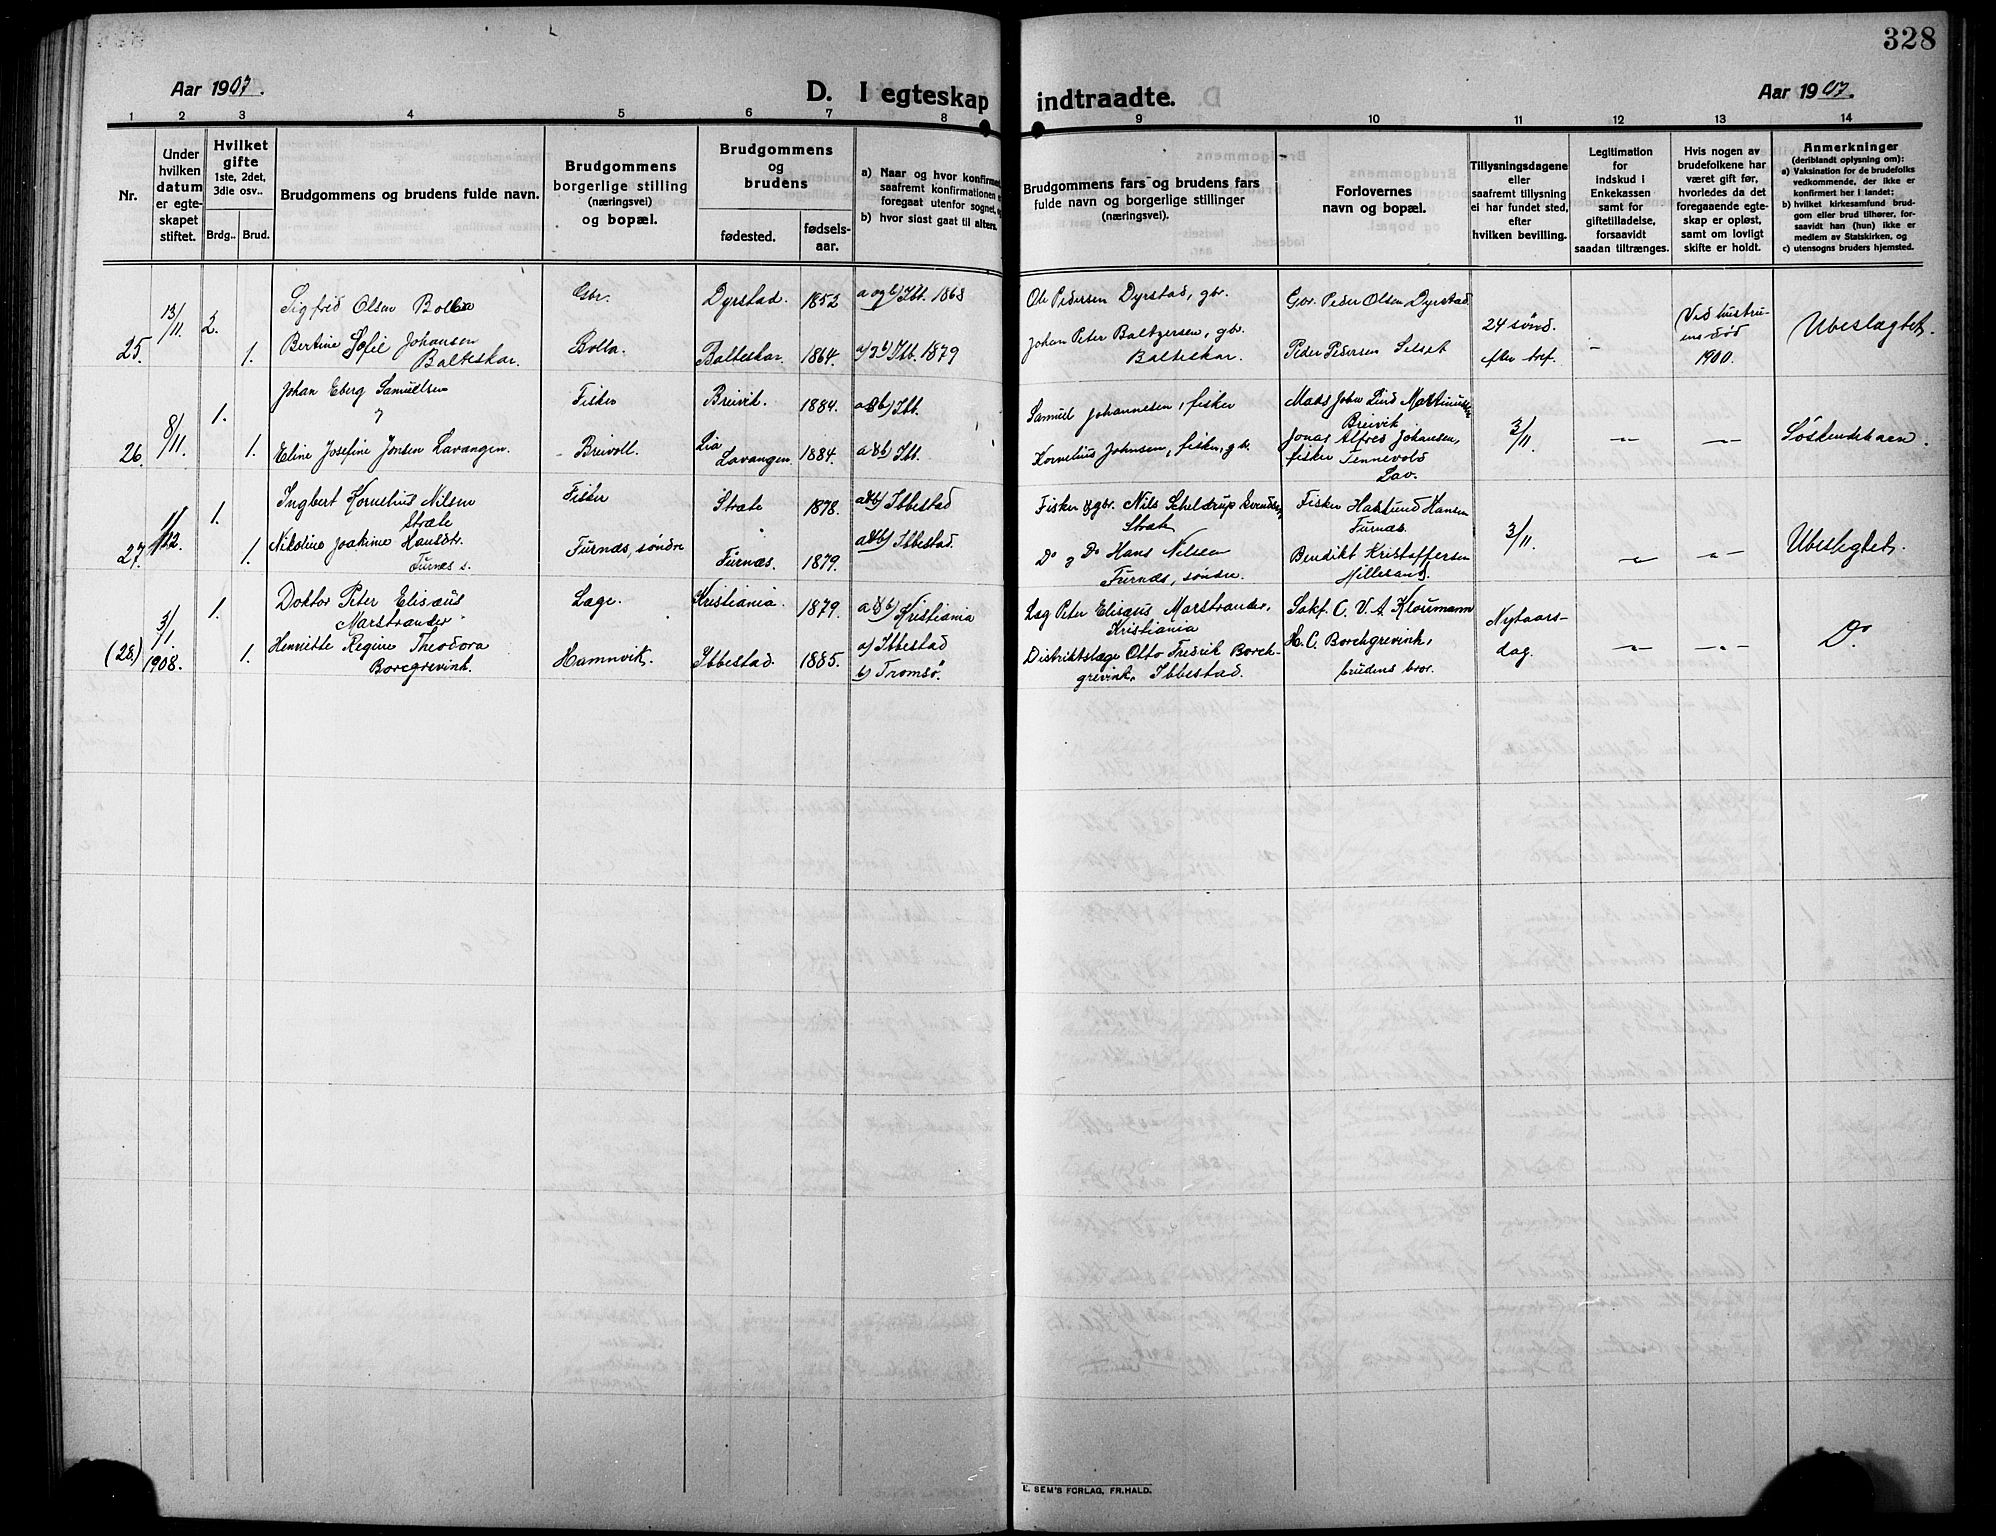 328
Aar 1907.
D. I egteskap indtraadte.
Aar 1907.
1 2 3 4 5 6 7 8 9 10 11 12 13 14
Nr.
Under
hvilken
datum
er egte-
skapet
stiftet.
Hvilket
gifte
1ste, 2det,
3die osv..
Brdg.. Brud.
Brudgommens og brudens fulde navn.
Brudgommens
borgerlige stilling
(næringsvei)
og bopæl.
Brudgommens
og
brudens
fødested.
fødsels-
aar.
a) Naar og hvor konfirm.
saafremt konfirmationen
foregaat utenfor sognet,
b) hvor sidst gaat til alters.
Brudgommens fars og brudens fars
fulde navn og borgerlige stillinger
(næringsvei).
Forlovernes
navn og bopæl.
Tillysningsdagene
eller
saafremt tillysning
ei har fundet sted,
efter
hvilken bevilling.
Legitimation
for
indskud i
Enkekassen
samt for
giftetilladelse,
forsaavidt
saadan tiltrænges.
Hvis nogen av
brudefolkene har
været gift før,
hvorledes da det
foregaaende egte-
skap er opløst,
samt om lovligt
skifte er holdt.
Anmerkninger
(deriblandt oplysning om):
a) Vaksination for de brudefolks
vedkommende, der ikke er
konfirmert her i landet;
b) hvilket kirkesamfund brud-
gom eller brud tilhører, for-
saavidt han (hun) ikke er
medlem av Statskirken, og
c) utensogns bruders hjemsted.
25.
13/11.
2.
Sigfrid Olsen Bolla
Gbr.
Dyrstad. 1852
a og b) Ibb. 1868
Ole Pedersen Dyrstad, gbr.
Gbr. Peder Olsen Dyrstad
24 sönd.
efter tref.
Ved hustru-
ens död
1900.
Ubeslægtet.
1.
Bertine Sofie Johansen
Balteskar.
Bolla.
Balteskar. 1864
Ibb. 1879
Johan Peter Baltzersen, gbr.
Balteskar.
Peder Pedersen Selset
26.
8/11.
1.
Johan Eberg Samuelsen
Fisker
Breivik. 1884.
a & b) Ibb.
Samuel Johannesen, fisker
Mads John Lind Martinussen
Breivik
3/11
Söskendebaen.
1.
Eline Josefine Jonsen Lavangen.
Breivoll.
Lia
Lavangen. 1884.
a & b) Ibb.
Kornelius Johnsen, fisker, gbr.
Jonas Alfred Johansen,
fisker Tennevold
Lav.
27.
1/12.
1.
Ingbert Kornelius Nilsen
Stræte
Fisker
Stræte 1878.
a & b) Ibbestad
Fisker & gbr. Nils Scheldrup Svendsen
Stræte
Fisker Hartund Hansen
Furnæs.
3/11.
Ubeslegtet.
1.
Nikoline Joakime Hansdtr.
Furnæs s.
Furnæs, söndre
Furnæs. 1879.
a & b) Ibbestad.
Do og Do Hans Nilsen
Furnæs, söndre.
Bendikt Kristoffersen
Hillesand.
(28.)
3/1.
1908.
1.
Doktor Peter Elisæus
Marstrander
Læge.
Kristiania. 1879.
a & b) Kristiania
Læg Peter Elisæus Marstrander,
Kristiania
Sakf. C. V. A Kloumann
Nytaars-
dag.
Do.
1.
Henriette Regine Theodora
Borcgrevink.
Hamnvik.
Ibbestad. 1885.
a) Ibbestad
b) Tromsö.
Distriktslæge Otto Fredrik Borch-
grevink, Ibbestad.
H. C. Borchgrevink,
brudens bror.
E. SEM'S FORLAG, FR.HALD.